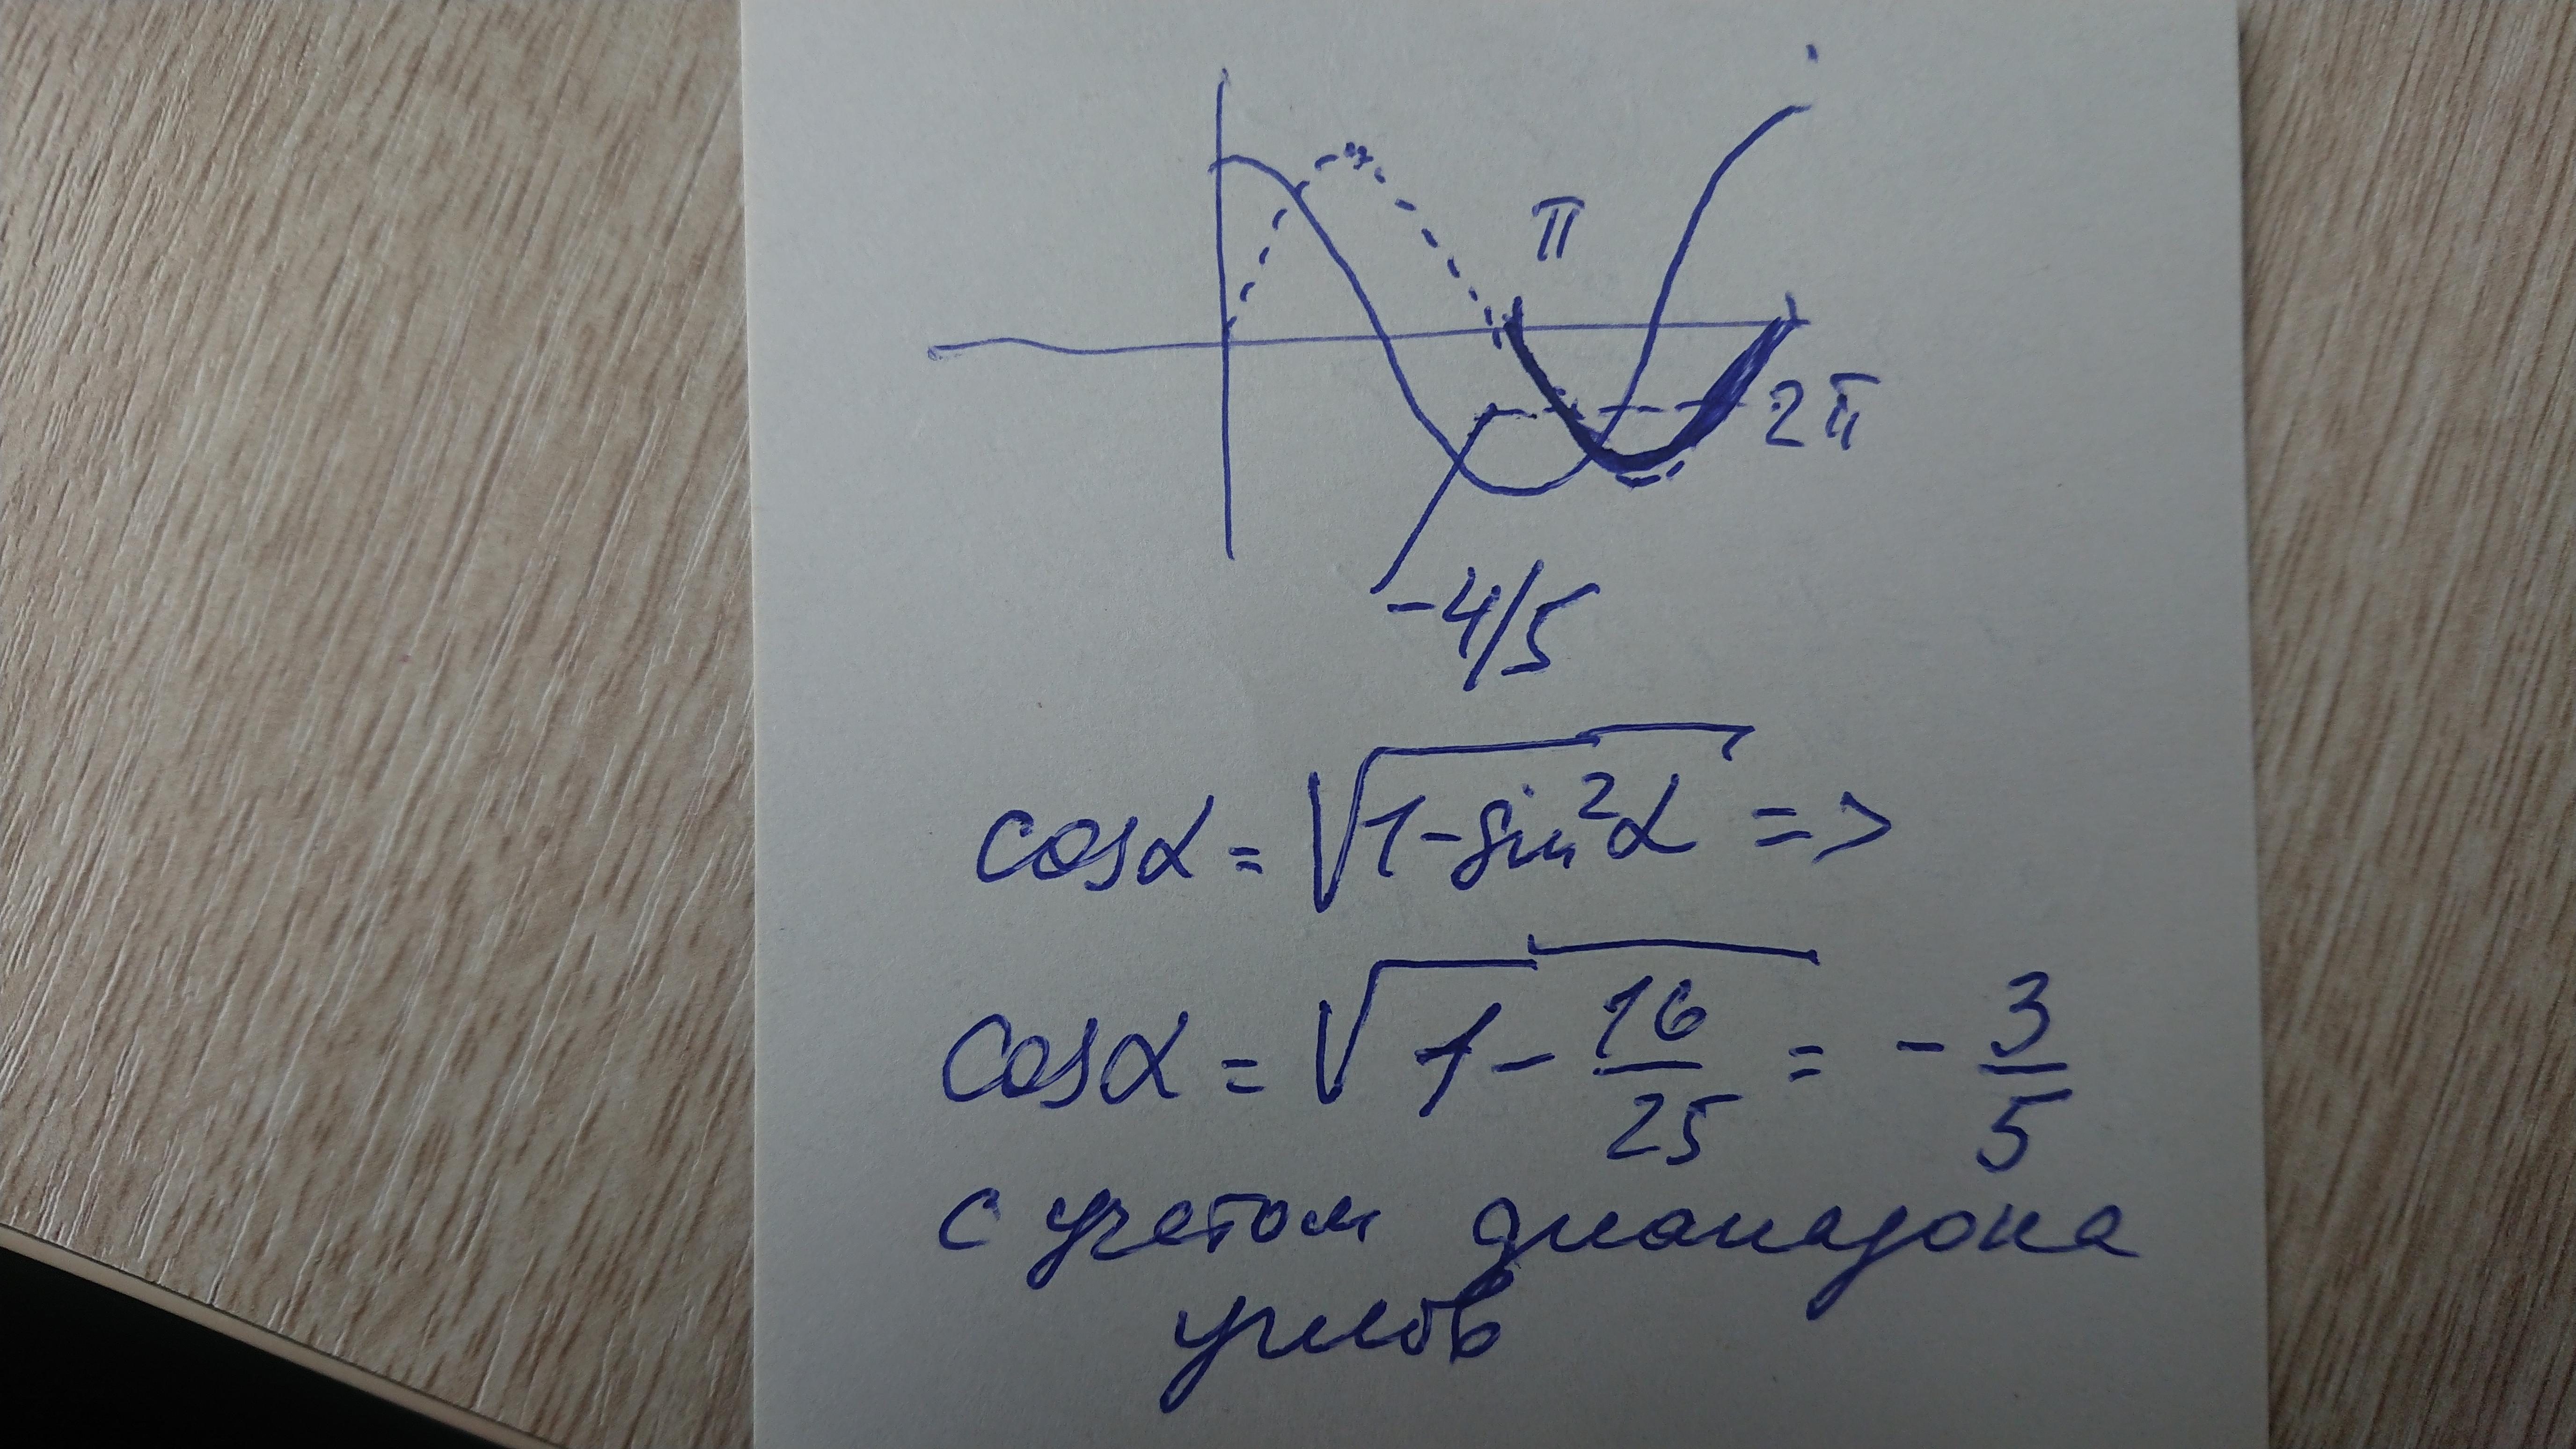 π
2π
-4/5
cosα = √1-sin²α =>
cosα = √1 - 16/25 = - 3/5
с учетом диапазона
углов